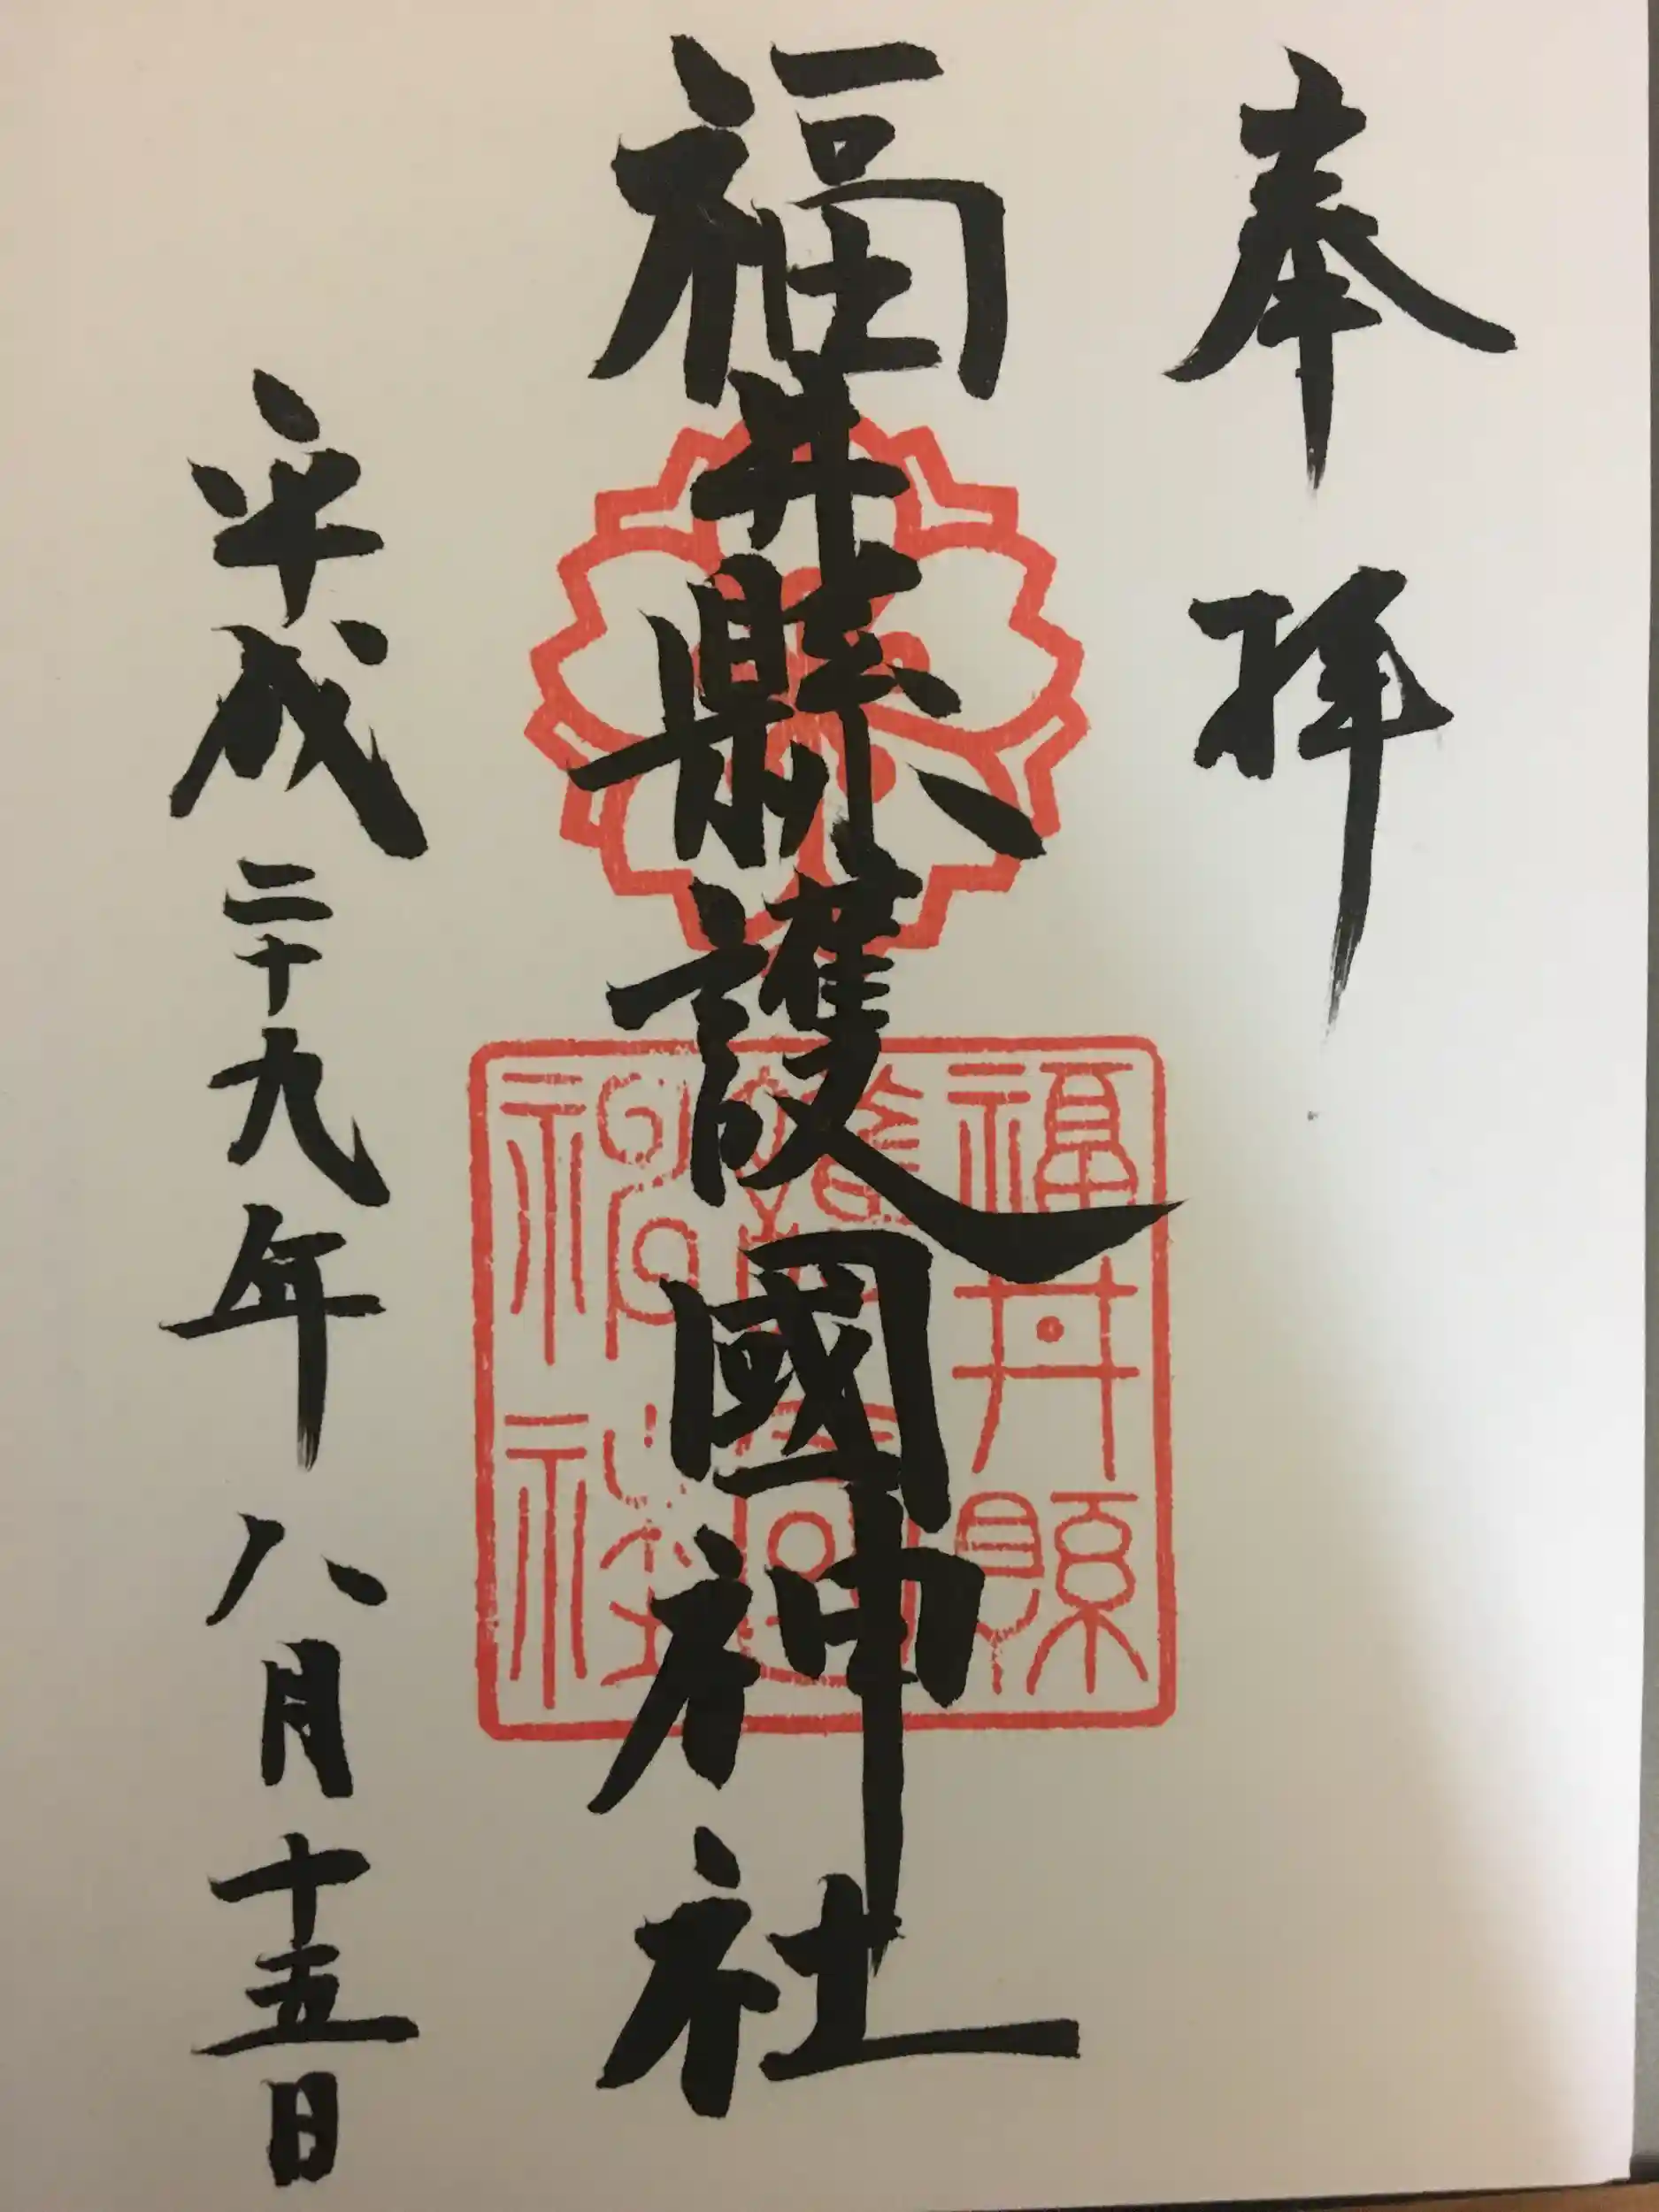 奉拝
福井縣護國神社
福井縣
護國
神社
平成二十九年八月十五日